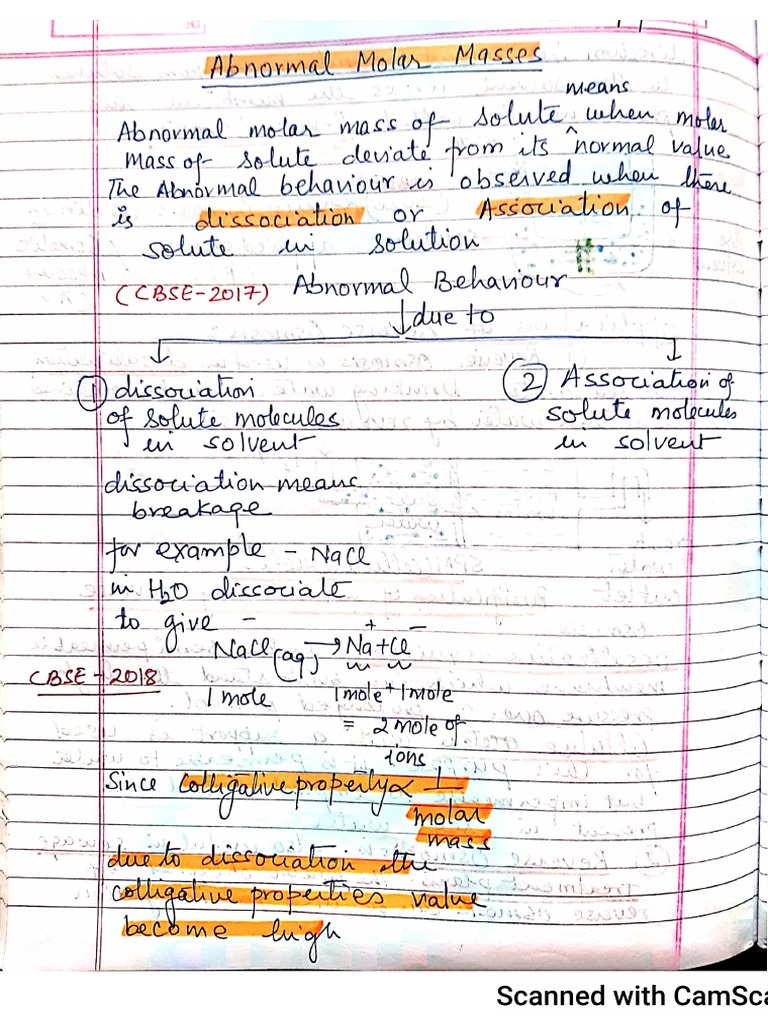 Abnormal Molar Masses
means
Abnormal molar mass of solute ^ when molar
mass of solute deviate from its normal value
The Abnormal behaviour is observed when there
is dissociation or Association of
solute in solution
(CBSE-2017) Abnormal Behaviour
due to
① dissociation
of solute molecules
in solvent
② Association of
solute molecules
in solvent
dissociation means
breakage
for example - NaCl
in H₂O dissociate
to give -
NaCl(aq) → Na⁺ + Cl⁻
CBSE - 2018
1 mole 1 mole + 1 mole
= 2 mole of
ions
Since Colligative property ∝ 1
molar
mass
due to dissociation the
colligative properties value
become high
Scanned with CamSca